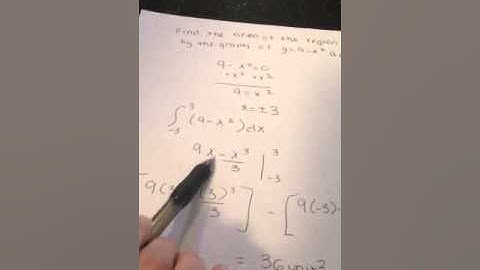 Find the area of the region
by the graphs of y=9-x²
9-x²=0
+x² +x²
9=x²
x=±3
∫₋₃³ (9-x²)dx
9x-x³/3 |₋₃³
9(3 (3)³/3] - [9(-3)
= 36 units²